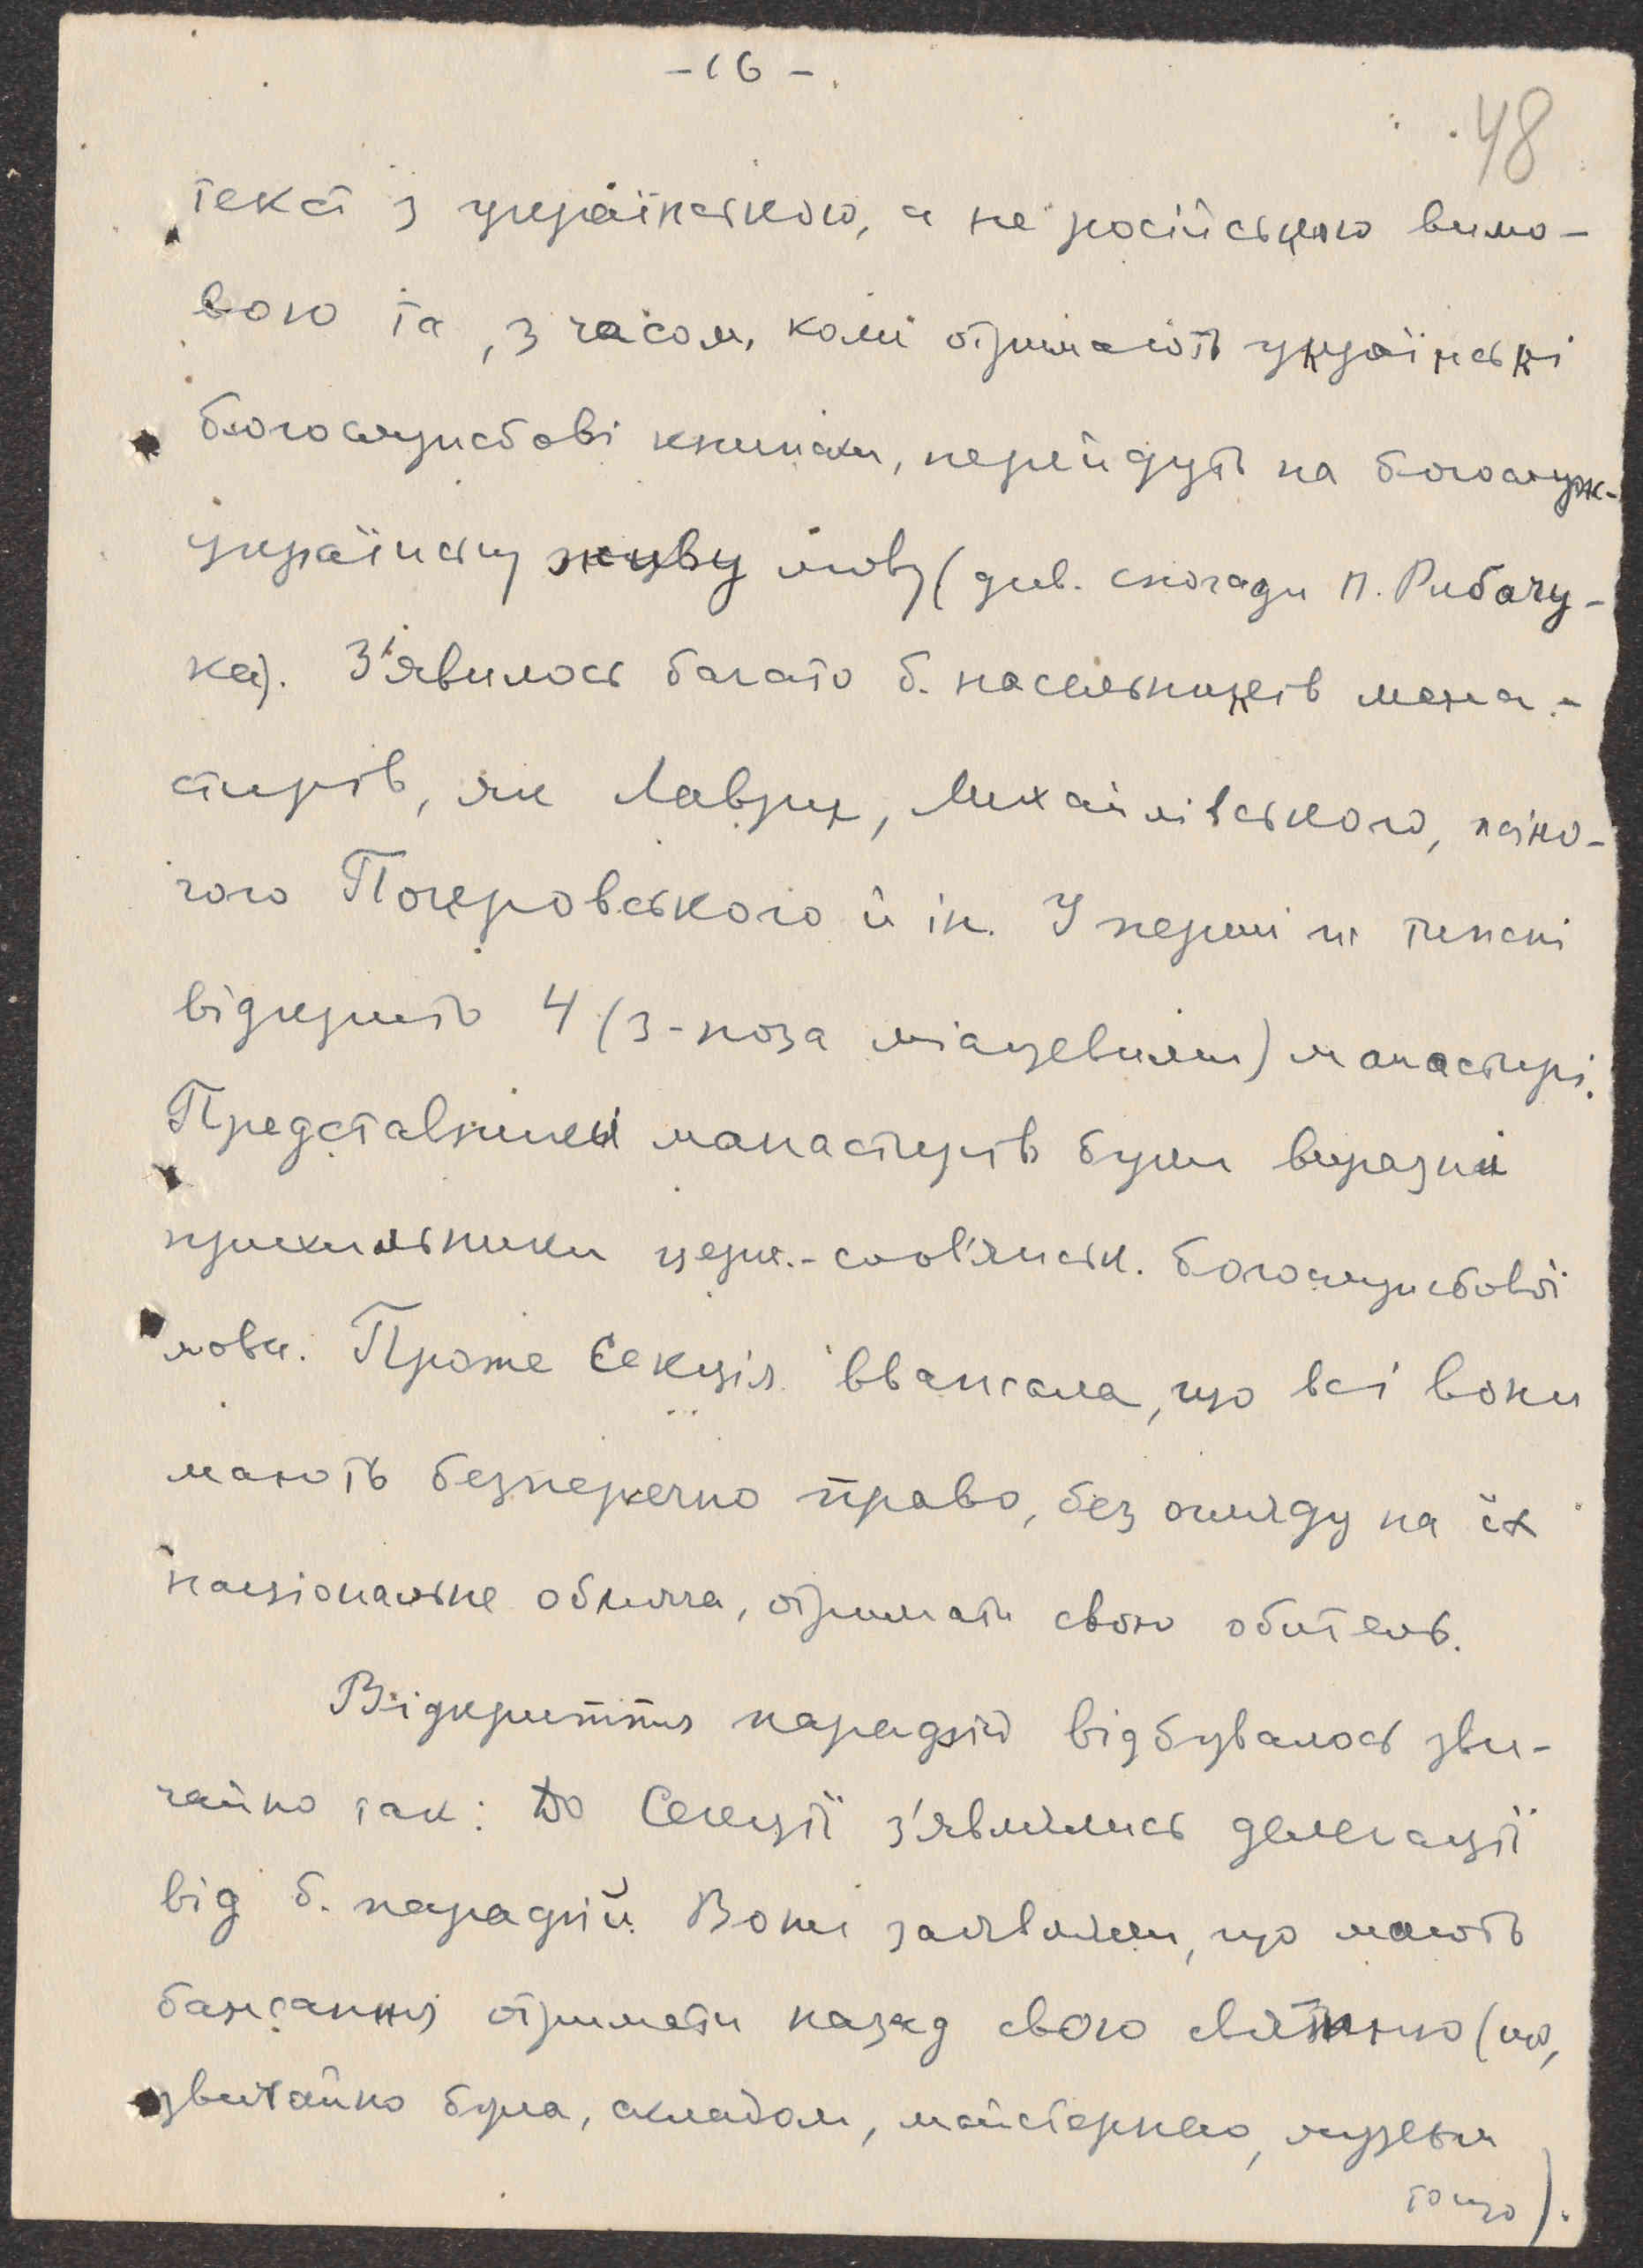 -16-
48
текст з українською, а не російською вимо-
вою та, з часом, коли отримають українські
богослужбові книжки, перейдуть на богослуж-
українську живу мову (див. спогади п. Рибачу-
ка). З'явилось багато б. насельників мона-
стирів, як Лаври, Михайлівського, жіно-
чого Покровського й ін. У перші ж тижні
відкрито 4 (з-поза місцевими) манастирі.
Представники манастирів були виразні
прихильники церк.-слов'янськ. богослужбової
мови. Проте Секція вважала, що всі вони
мають безперечно право, без огляду на їх
національне обличча, отримати свою обитель.
Відкриття парафій відбувалось зви-
чайно так: До Секції з'являлись делегації
від б. парафій. Вони заявляли, що мають
бажання отримати назад свою святиню (що,
звичайно була, складом, майстернею, музеєм
тощо).